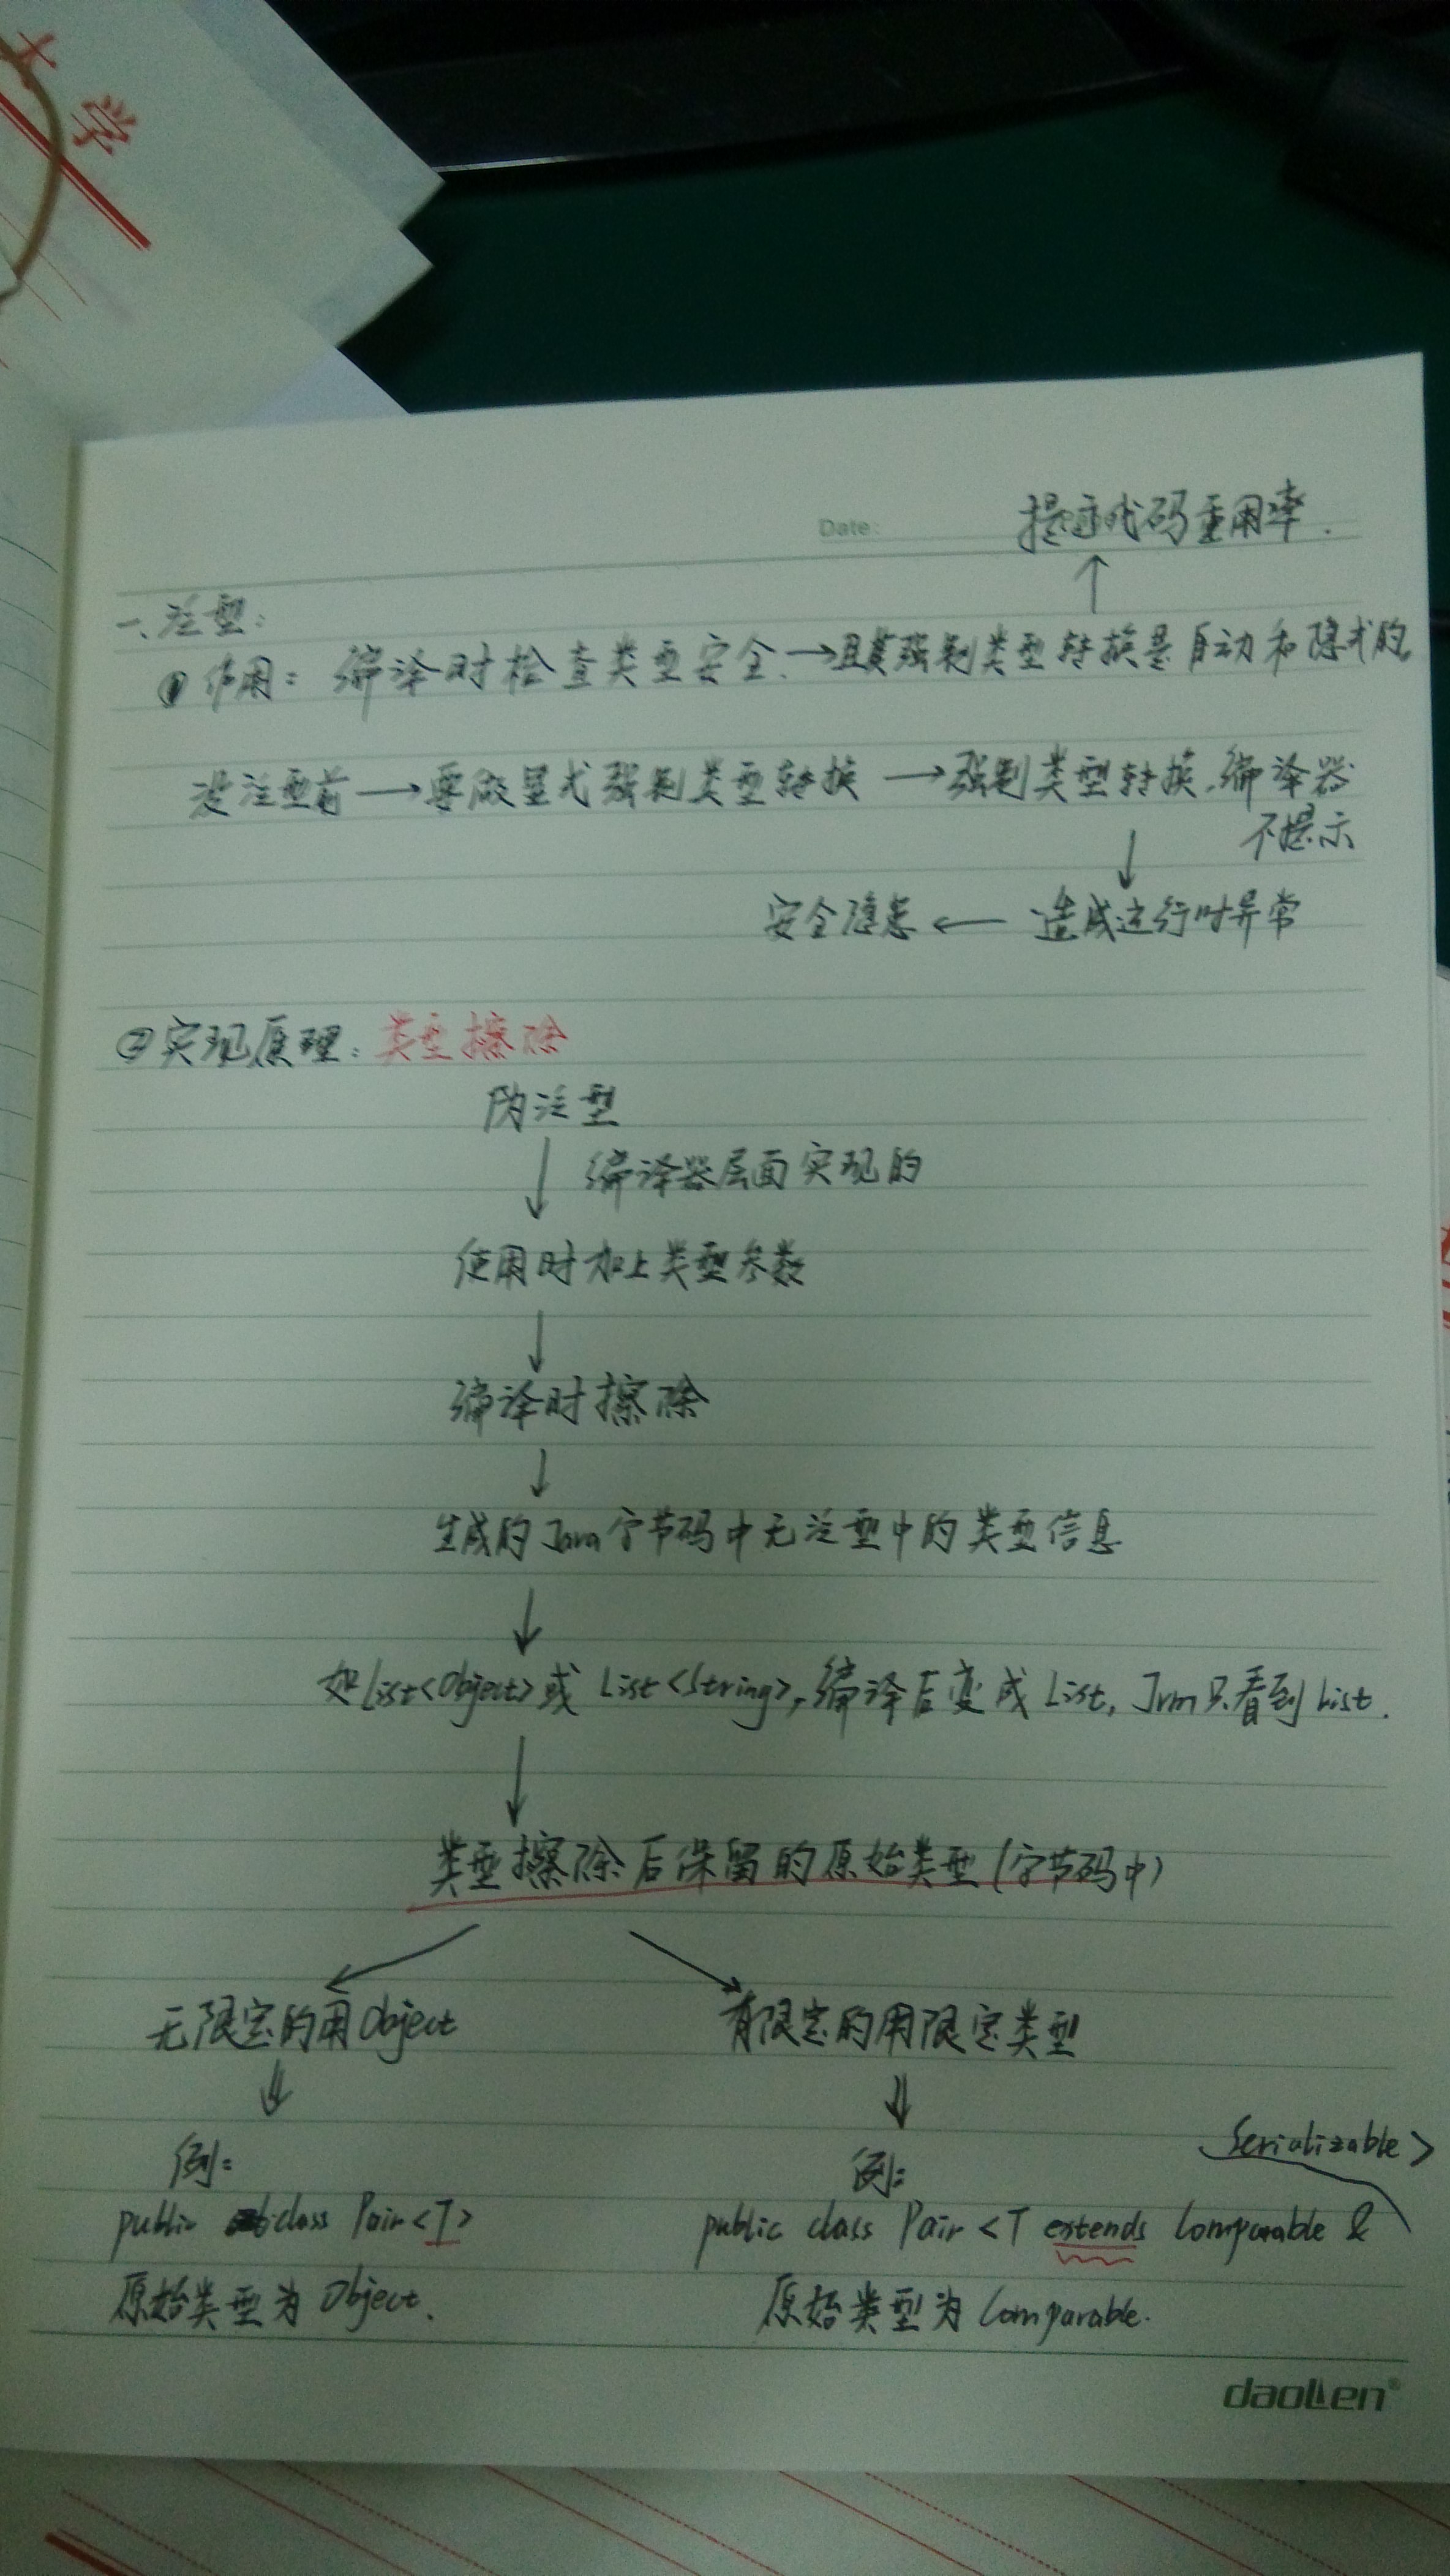 大学
Date: 提高代码重用率.
↑
一、泛型:
① 作用: 编译时检查类型安全.→且其强制类型转换是自动和隐式的
没泛型前→要做显式强制类型转换→强制类型转换,编译器
不提示
↓
安全隐患←造成运行时异常
②实现原理: 类型擦除
伪泛型
↓ 编译器层面实现的
使用时加上类型参数
↓
编译时擦除
↓
生成的Java字节码中无泛型中的类型信息
↓
如List<Object>或 List<String>,编译后变成 List, Jvm只看到 List.
↓
类型擦除后保留的原始类型(字节码中)
无限定的用Object 有限定的用限定类型
⇓ ⇓
例: 例: Serializable>
public class Pair<T> public class Pair<T extends Comparable &
原始类型为 Object. 原始类型为 Comparable.
daollen®